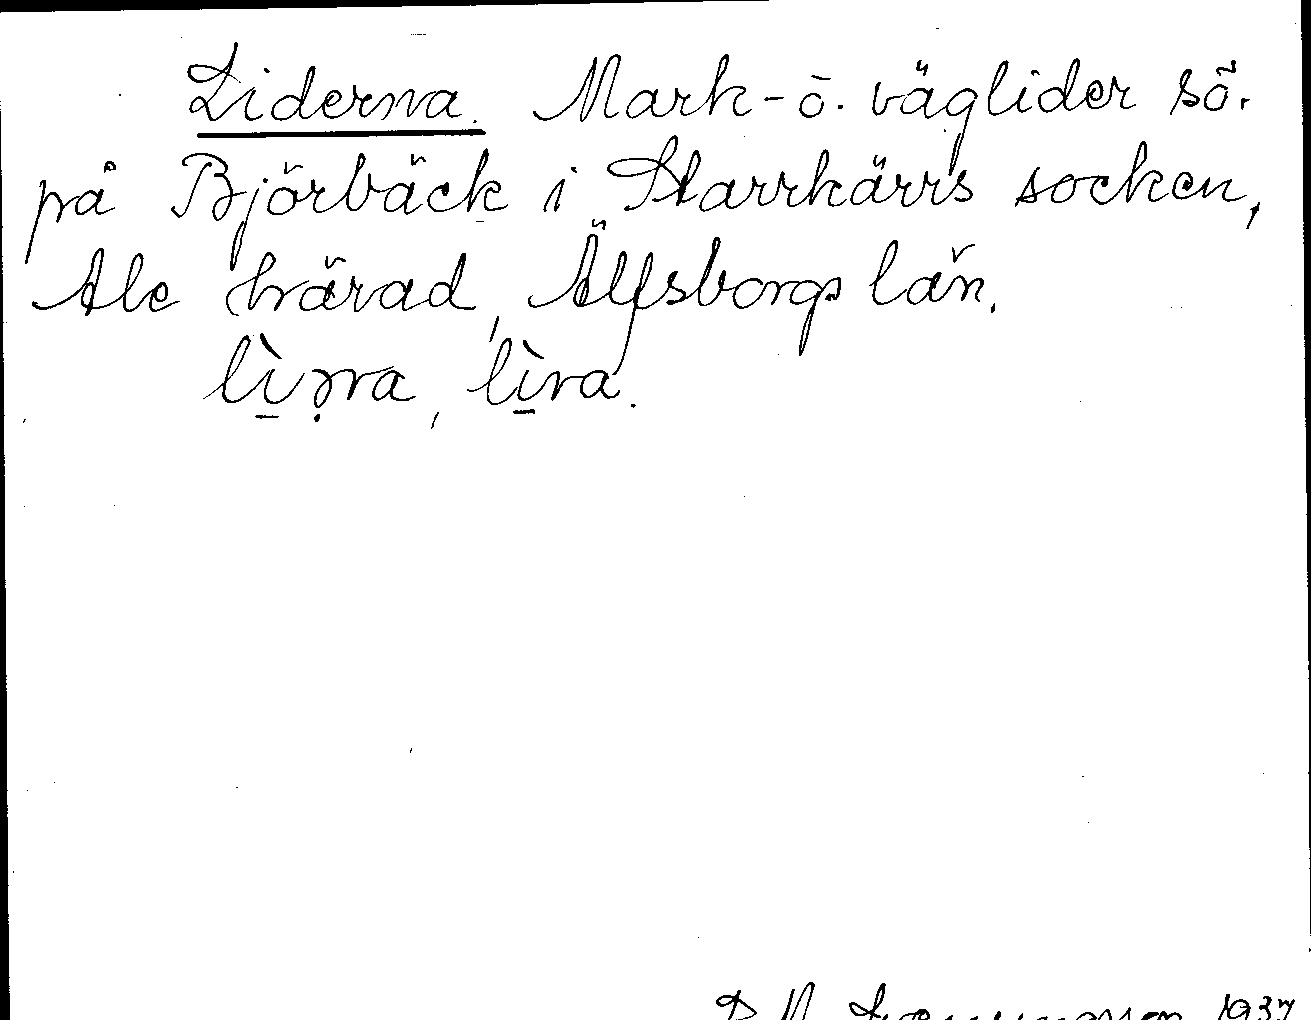 Liderna. Mark- o. väglider sö.
på Björbäck i Starrkärrs socken,
Ale härad, Älfsborgs län.
lìəra, lìra.
1937